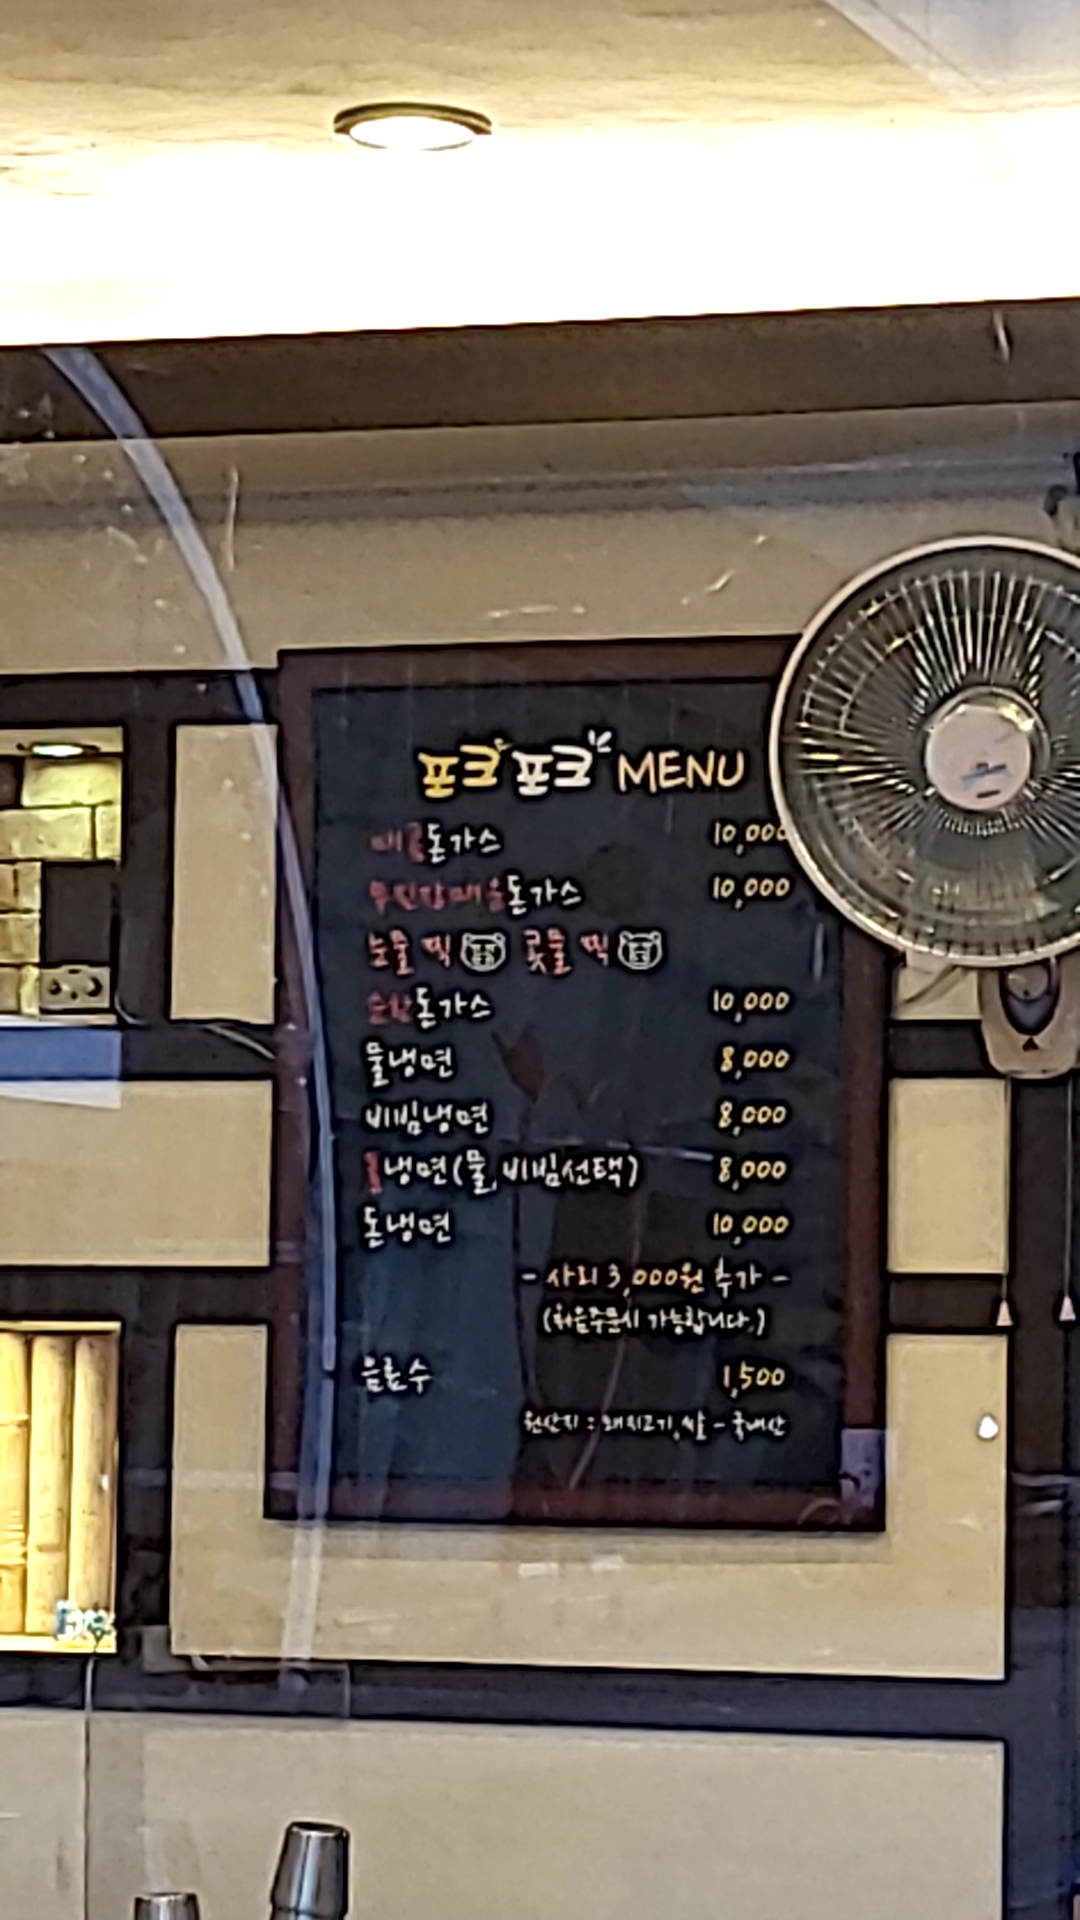 포크포크 MENU
매콤돈가스 10,000
무진장매운돈가스 10,000
눈물 찍 콧물 찍
순한돈가스 10,000
물냉면 8,000
비빔냉면 8,000
냉면(물,비빔선택) 8,000
돈냉면 10,000
- 사리 3,000원 추가 -
(처음주문시 가능합니다.)
음료수 1,500
원산지 : 돼지고기,쌀 - 국내산